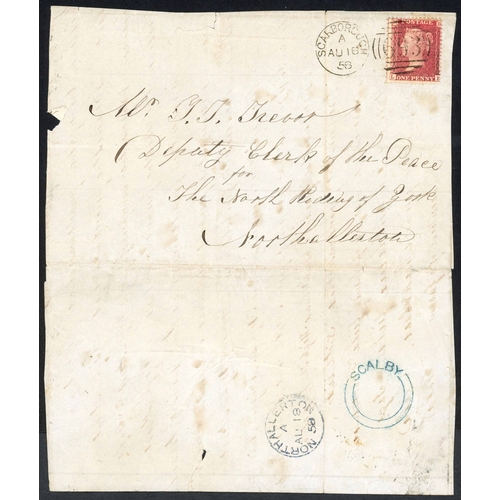 SCARBOROUGH
A
AU 18
58
ONE PENNY
Mr. T. T. Trevor
Deputy Clerk of the Peace
for
The North Riding of York
Northallerton
SCALBY
NORTHALLERTON
A
AU 18
58